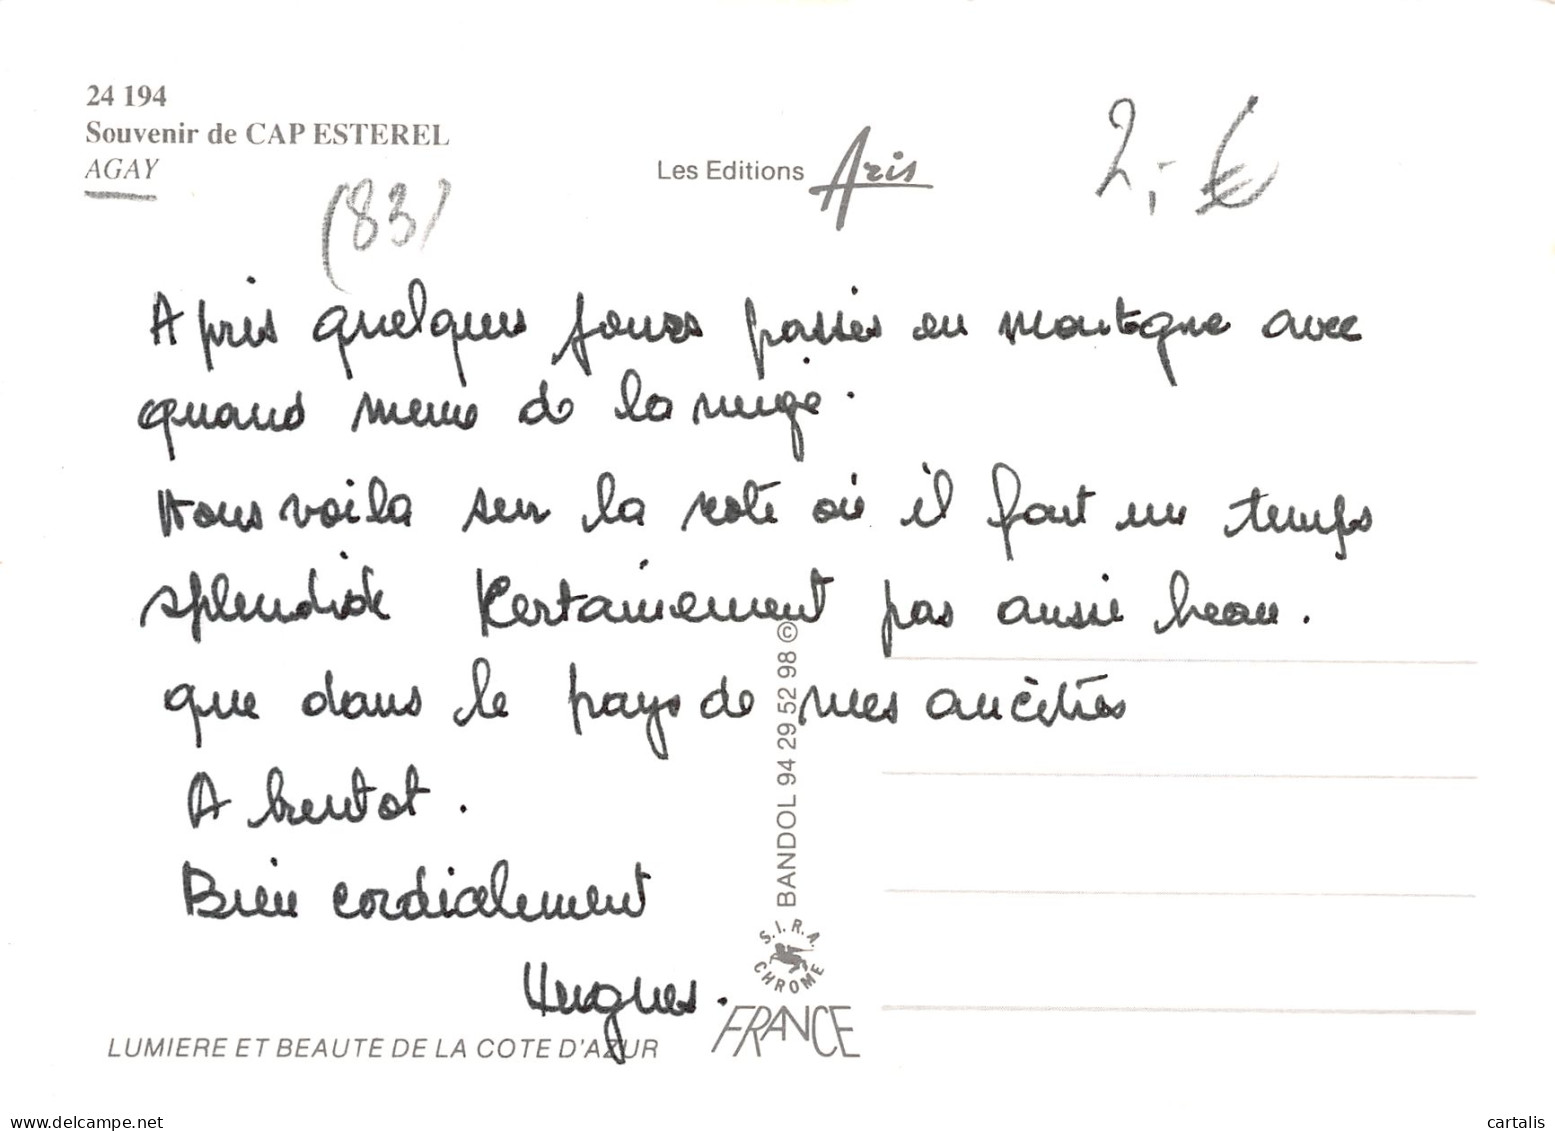 24 194
Souvenir de CAP ESTEREL
AGAY
Les Editions Aris
2,- €
(83)
Après quelques jours passés en montagne avec
quand meme de la neige.
Nous voila sur la cote où il fait un temps
splendide Certainement pas aussi beau.
que dans le pays de mes ancètres
A bientot.
Bien cordialement
Hugues.
BANDOL 94 29 52 98 ©
S.I.R.A.
CHROME
FRANCE
LUMIERE ET BEAUTE DE LA COTE D'AZUR
delcampe.net
cartalis